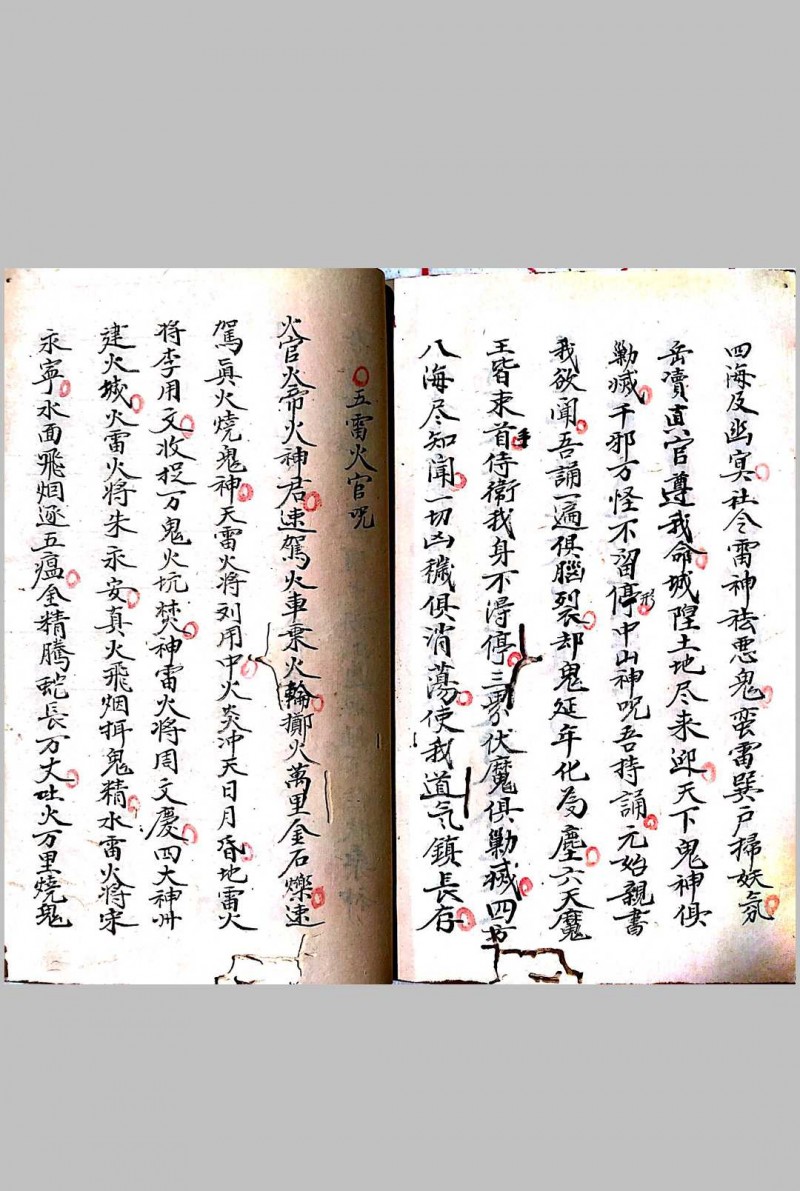 四海及幽冥社令雷神祛悪鬼蛮雷巽户掃妖氛
岳凟真官遵我命城隍土地尽来迎天下鬼神俱
勦滅千邪万怪不留停形中山神呪吾持誦元始親書
我欲聞吾誦一遍俱腦裂却鬼延年化為塵六天魔
王皆束首手侍衛我身不得停三界伏魔俱勦滅四方
八海尽知聞一切凶穢俱消蕩使我道气鎮長存
五雷火官呪
火官火帝火神君速駕火車乗火輪擲火萬里金石爍速
駕真火燒鬼神天雷火将刘用中火炎冲天日月昏地雷火
将李用文收捉万鬼火坑焚神雷火将周文慶四大神州
建火城火雷火将朱永安真火飛烟揖鬼精水雷火将宋
永寧水面飛烟逐五瘟金精騰蛇長万丈吐火万里燒鬼